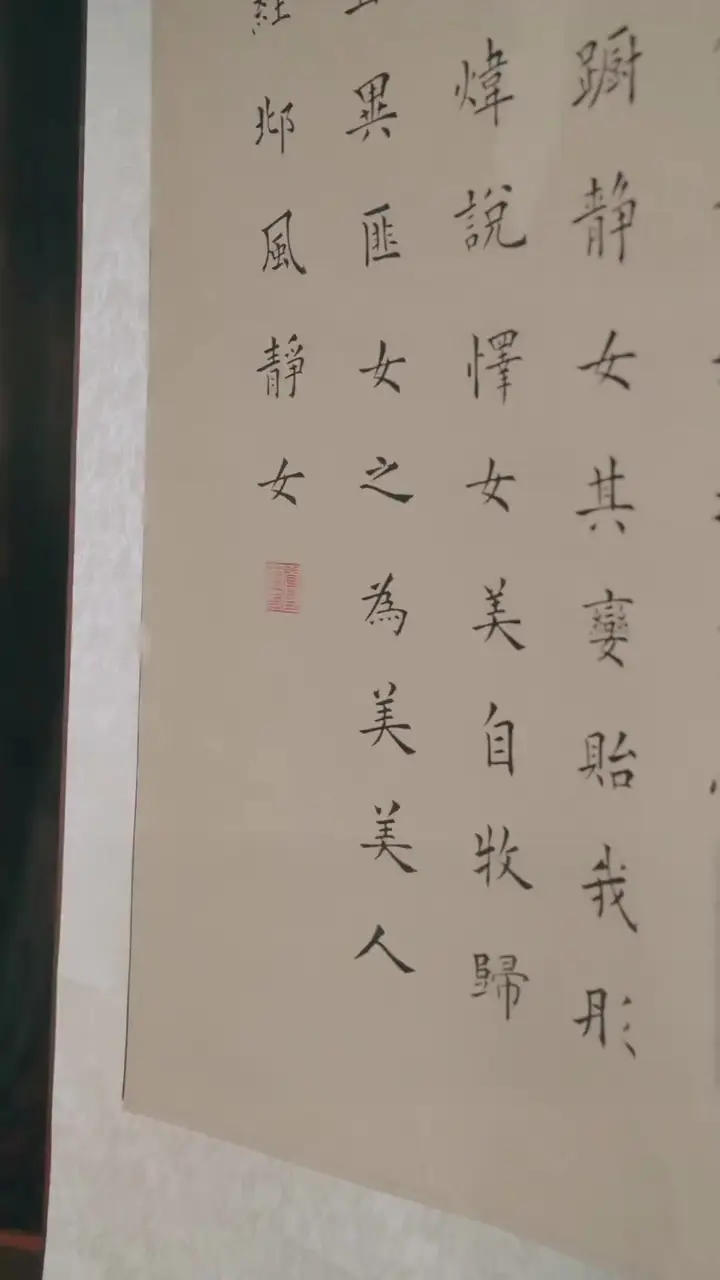 蹰静女其孌貽我彤
煒說懌女美自牧歸
異匪女之為美美人
邶風靜女